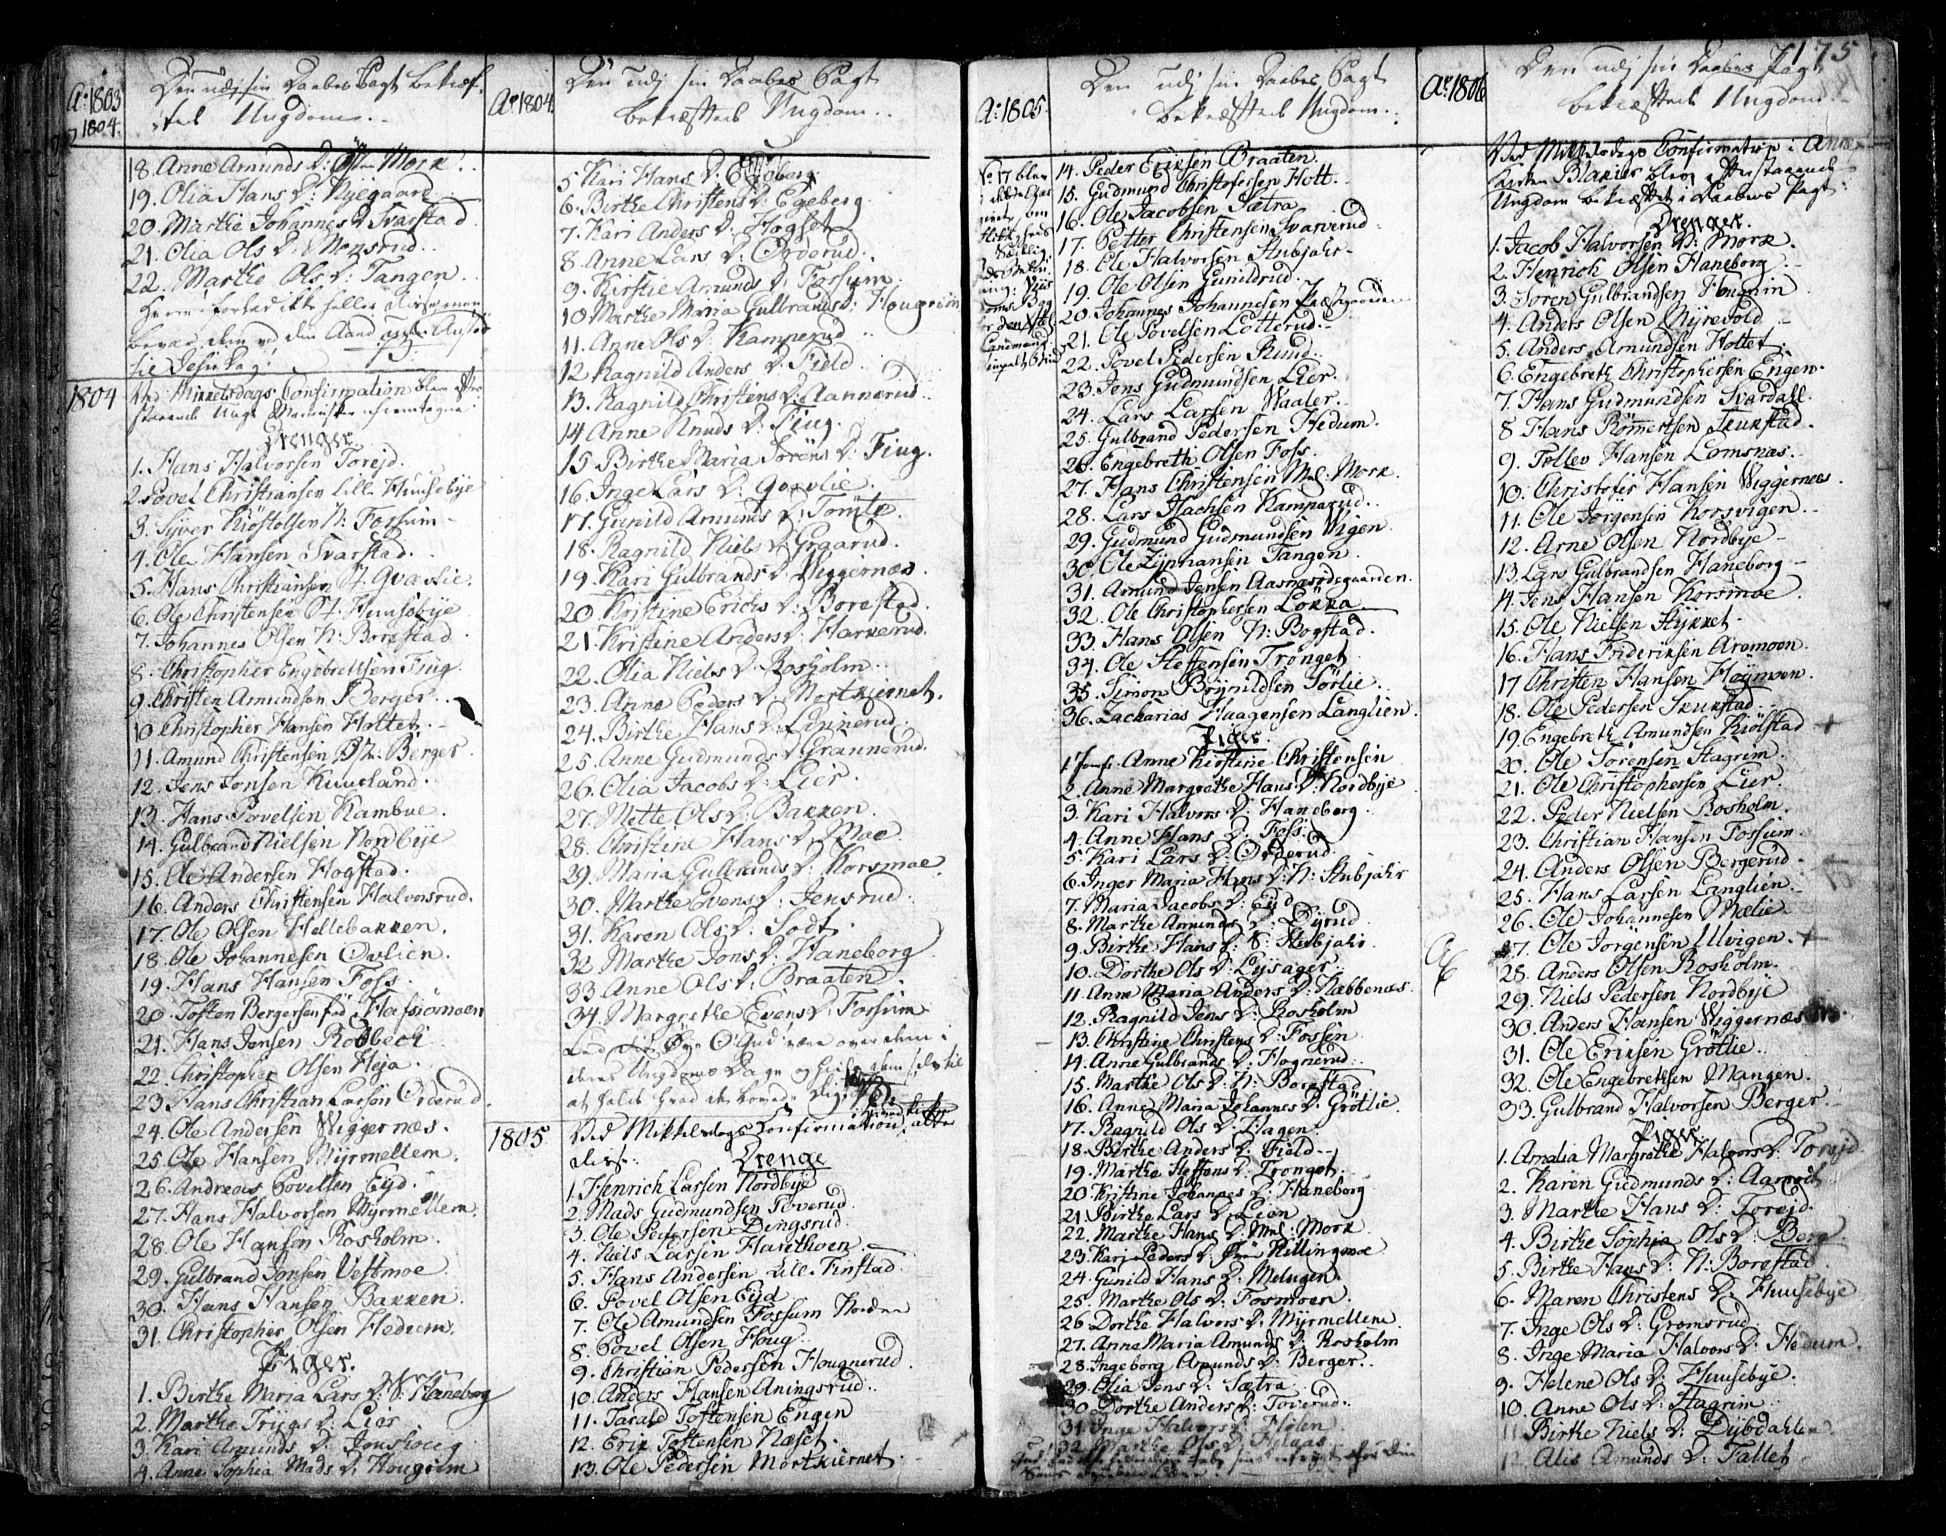 175
Ao: 1803
1804.
Den udj sin Daabes Pagt bekræf-
tede Ungdom.
18. Anne Amunds D: Mork.
19. Olia Hans D: Nyegaard.
20. Marthe Johannes D Svarstad
21. Olia Ols D: Monsrud.
22. Marthe Ols D: Tangen.
Herre! forlad ikke heller disse
bevar dem ved din Aand
1804
Ved Mikkelsdags Confirmation blev efter-
staaende Unge Mennesker
Drenger
1. Hans Halvorsen Torejd.
2. Povel Christiansen Lill. Huusebye
3. Syver Kiöstolsen N: Fossum
4. Ole Hansen Svarstad.
5. Hans Christiansen St. Qvavlie.
6. Ole Christensen St. Huusebye
7. Johannes Olsen N: Borestad.
8. Christopher Engebrettsen Fiug.
9. Christen Amundsen Berger.
10. Christopher Hansen Holtet.
11. Amund Christensen Berger.
12. Jens Jonsen Kuusland.
13. Hans Povelsen Kambue.
14. Gulbrand Nielsen Nordbye
15. Ole Andersen Hogstad.
16. Anders Christensen Halvorsrud.
17. Ole Olsen Hellebakken.
18. Ole Johannesen Ovlien.
19. Hans Hansen Foss.
20. Tosten Bergersen Hafsiömoen
21. Hans Jensen Rodbech
22. Christopher Olsen Heja.
23. Hans Christian Larsen Orderud.
24. Ole Andersen Wiggernæs.
25. Ole Hansen Myrmellem.
26. Andreas Povelsen Eyd.
27. Hans Halvorsen Myrmellem.
28. Ole Hansen Rosholm.
29. Gulbrand Jonsen Vestmoe
30. Hans Hansen Bakken.
31. Christopher Olsen Hedum.
Piger.
1. Birthe Maria Lars D: Haneborg
2. Marthe Trygs D: Lier
3. Kari Amunds D: Jonshoug
4. Anne Sophia Mads D: Hougrim
Ao: 1804.
Den udj sin Daabes Pagt
bekræftede Ungdom.
5. Kari Hans D: Egeberg
6. Birthe Christens D: Egeberg.
7. Kari Anders D: Hogset
8. Anne Lars D: Orderud.
9. Kirstie Amunds D: Fossum
10. Marthe Maria Gulbrands D: Hougrim
11. Anne Ols D: Kamperud
12. Ragnild Anders D. Field.
13. Ragnild Christens D: Aannerud.
14. Anne Knuds D: Fiug.
15. Birthe Maria Sörens D: Fiug.
16. Inge Lars D: Qvavlie.
17. Gunild Amunds D: Tomte.
18. Ragnild Niels D Graarud.
19. Kari Gulbrands D: Wiggernæs.
20. Kristine Erichs D: Borestad.
21. Kristine Anders D: Harkerud.
22. Olia Niels D: Rosholm.
23. Anne Peders D: Mortkiernet.
24. Birthe Hans D: Linnerud.
25. Anne Gudmunds D: Grannerud.
26. Olia Jacobs D: Lier.
27. Mette Ols D: Bakken.
28. Christine Hans D: Moe
29. Maria Gulbrands D: Korsmoe.
30. Marthe Evens D: Jensrud.
31. Karen Ols D: Sodt.
32. Marthe Jons D: Haneborg
33. Anne Ols D: Braaten
34. Margrethe Evens D: Fossum
Lad dit Öye O Gud være over dem i
deres Ungdoms Dage og
at holde hvad de lovede Dig.
1805
Ved Mikkelsdags Confirmation
Drenge
1. Henrich Larsen Nordbye
2. Mads Gudmundsen Toverud.
3. Ole Pedersen Dingsrud.
4. Niels Larsen Harithoen.
5. Hans Andersen Lill. Finstad.
6. Povel Olsen Eyd
7. Ole Amundsen Fossum Norden
8. Povel Olsen Houg.
9. Christian Pedersen Hougnerud.
10. Anders Hansen Aningsrud.
11. Tarald Tostensen Engen
12. Erik Tostensen Næset.
13. Ole Pedersen Mortkiernet.
Ao: 1805.
Den udj sin Daabes Pagt
bekræftede Ungdom.
No 17 blev
14. Peder Eriksen Braaten.
15. Gudmund Christofersen Holt.
16. Ole Jacobsen Sætra
17. Petter Christensen Svarverud.
18. Ole Halvorsen Stubjahr
19. Ole Olsen Gunildrud.
20. Johannes Johannesen Præstegaarden
21. Ole Povelsen Lotterud.
22. Povel Pedersen Ruud.
23. Jens Gudmundsen Lier.
24. Lars Larsen Waaler.
25. Gulbrand Pedersen Hedum.
26. Engebreth Olsen Foss.
27. Hans Christensen Mel: Mork.
28. Lars Isachsen Kamperud.
29. Gudmund Gudmundsen Vigen
30. Ole Zipriansen Tangen.
31. Amund Jensen Aasmosödegaarden.
32. Ole Christophersen Lökka.
33. Hans Olsen N: Bogstad.
34. Ole Steffensen Tronget
35. Simon Brynildsen Sörlie.
36. Zacharias Haagensen Langlien.
Piger.
1 Jomf. Anne Kirstine Christensen
2. Anne Margrethe Hans D: Nordbye
3. Kari Halvors D: Haneborg.
4. Anne Hans D. Foss.
5. Kari Lars D: Orderud.
6. Inger Maria Hans D: N: Stubjahr
7. Maria Jacobs D: Eyd
8. Marthe Amunds D: Dyrud.
9. Birthe Hans D: S: Stubjahr
10. Dorthe Ols D: Lysager.
11. Anne Maria Anders D: Nabbenæs.
12. Ragnild Jens D: Rosholm
13. Christine Christens D: Fossen
14. Anne Gulbrands D: Hognerud.
15. Marthe Ols D: N: Borestad
16. Anne Maria Johannes D: Grötlie.
17. Ragnild Ols D: Hagen.
18. Birthe Anders D: Field
19. Marthe Steffens D: Tronget.
20. Kristine Johannes D: Haneborg
21. Birthe Lars D: Lien
22. Marthe Hans D: Mel: Mork
23. Kari Peders D: Killingmoe
24. Gunild Hans D: Melngen.
25. Marthe Ols D: Fosmoen.
26. Dorthe Halvors D: Myrmellem.
27. Anne Maria Amunds D: Rosholm
28. Ingeborg Amunds D: Berger.
29. Olia Jens D: Sætra
30. Dorthe Anders D: Toverud.
31. Inge Halvors D: Holen
32. Marthe Ols D: Hylaas
Ao: 1806
Den udj sin Daabes Pagt
bekræftede Ungdom.
Ved Mikkelsdags Confirmation i Annex
Kirken Blakier bleve efterstaaende
Ungdom bekræftet i Daabens Pagt.
Drenger.
1. Jacob Halvorsen N: Mork.
2. Henrich Olsen Haneborg
3. Sören Gulbrandsen Hougrim
4. Anders Olsen Nyrevold
5. Anders Amundsen Holtet.
6. Engebreth Christophersen Engen.
7. Hans Gudmundsen Svardall.
8. Hans Römmertsen Skukstad.
9. Tollev Hansen Lomsnæs.
10. Christofer Hansen Wiggernæs.
11. Ole Jörgensen Korsvigen.
12. Arne Olsen Nordbye
13. Lars Gulbrandsen Haneborg
14. Jens Hansen Korsmoe.
15. Ole Nielsen Stykket
16. Hans Frideriksen Aremoen.
17. Christen Hansen Høymoen.
18. Ole Pedersen Skukstad.
19. Engebreth Amundsen Kiölstad +
20. Ole Sörensen Stagrim.
21. Ole Christophersen Lier.
22. Peder Nielsen Rosholm.
23. Christian Hansen Fossum.
24. Anders Olsen Bergerud.
25. Hans Larsen Langlien.
26. Ole Johannesen Mælie
27. Ole Jörgensen Ulvigen. +
28. Anders Olsen Rosholm.
29. Niels Pedersen Nordbye
30. Anders Hansen Wiggernæs
31. Ole Eriksen Grötlie.
32. Ole Engebretsen Mangen.
33. Gulbrand Halvorsen Berger.
Piger
1. Amalia Margrethe Halvors D: Torejd
2. Karen Gudmunds D: Aamodt
3. Marthe Hans D: Torejd.
4. Birthe Sophia Ols D: Berg
5. Birthe Hans D: N: Borestad.
6. Maren Christens D: Huusebye
7. Inge Ols D: Gromsrud.
8. Inge Maria Halvors D: Hedum.
9. Helene Ols D: Huusebye.
10. Anne Ols D: Stagrim.
11. Birthe Niels D: Dybdahlen
12. Alis Amunds D: Fallet